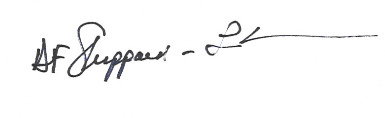 AF Sheppard -